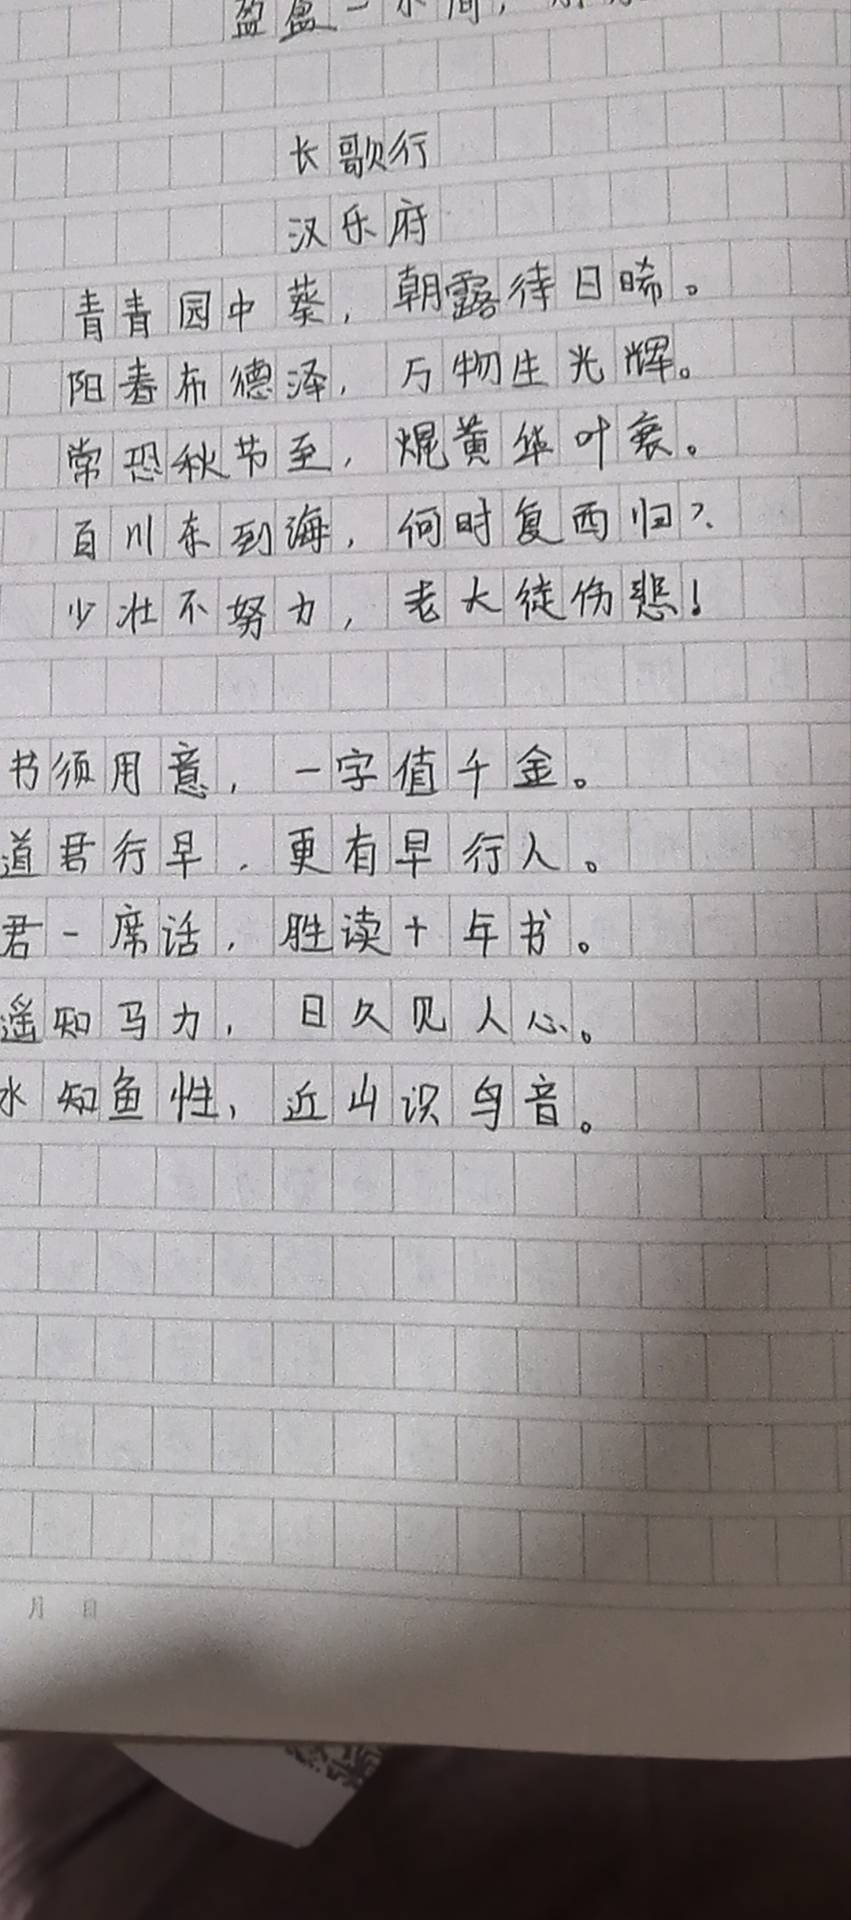 盈盈一水间，
长歌行
汉乐府
青青园中葵，朝露待日晞。
阳春布德泽，万物生光辉。
常恐秋节至，焜黄华叶衰。
百川东到海，何时复西归？
少壮不努力，老大徒伤悲！
书须用意，一字值千金。
道君行早，更有早行人。
君一席话，胜读十年书。
遥知马力，日久见人心。
水知鱼性，近山识鸟音。
月 日